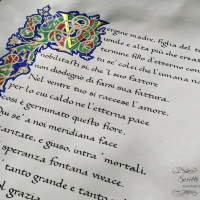 Vergine madre, figlia del
umile e alta più che
termine fisso d'etterno
tu se' colei che l'umana
nobilitasti sì, che 'l suo fattore
non disdegnò di farsi sua fattura.
Nel ventre tuo si raccese l'amore,
per lo cui caldo ne l'etterna pace
così è germinato questo fiore.
Qui se' a noi meridiana face
caritate, e giuso, intra ' mortali,
speranza fontana vivace.
tanto grande e tanto
grazia